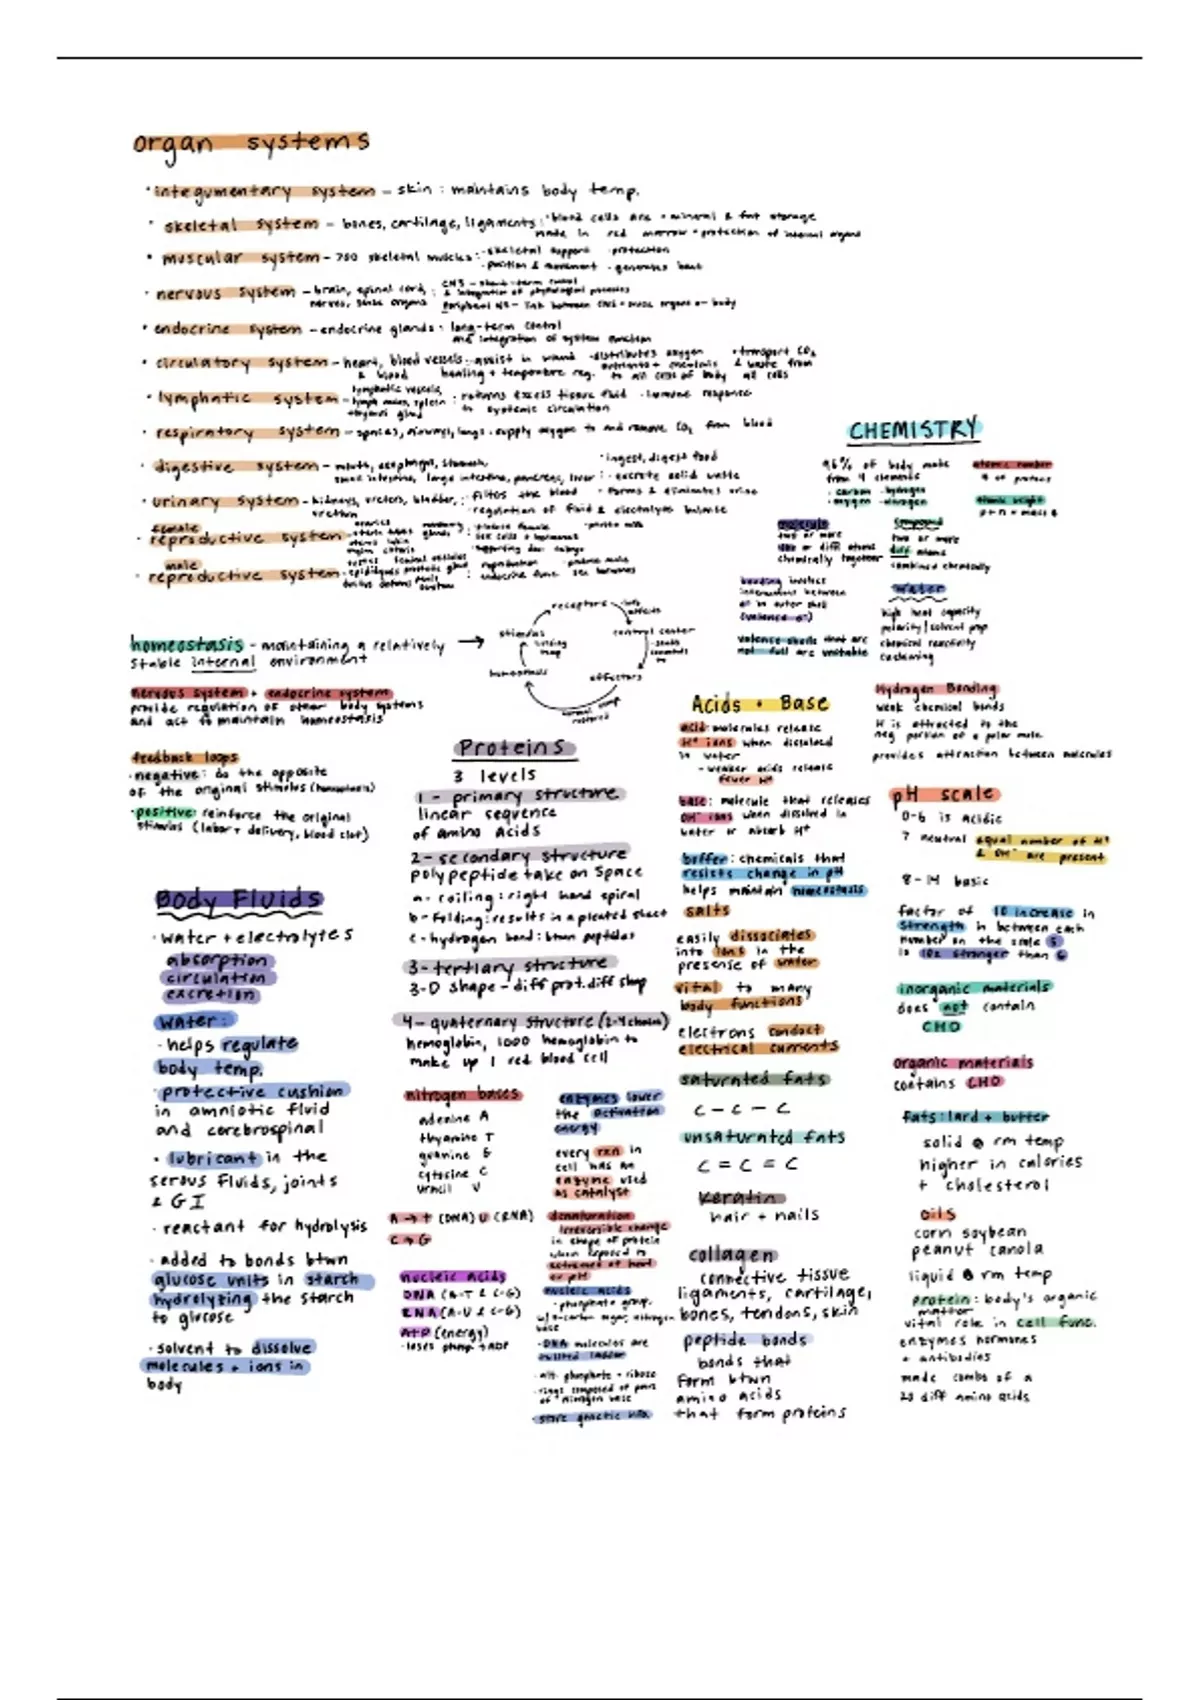 organ systems
· integumentary system – skin : maintains body temp.
· skeletal system – bones, cartilage, ligaments : · blood cells are · mineral & fat storage
made in red marrow · protection of internal organs
· muscular system – 700 skeletal muscles : · skeletal support · protection
· position & movement · generates heat
· nervous system – brain, spinal cord, : CNS – short-term control
nerves, sense organs & integration of physiological processes
Peripheral NS – link between CNS + sense organs or body
· endocrine system – endocrine glands : long-term control
and integration of system function
· circulatory system – heart, blood vessels : assist in wound · distributes oxygen · transport CO₂
& blood healing + temperature reg. nutrients + chemicals & waste from
to all cells of body all cells
· lymphatic system – lymphatic vessels,
lymph nodes, spleen : returns excess tissue fluid · immune response
thymus gland to systemic circulation
· respiratory system – spaces, airways, lungs · supply oxygen to and remove CO₂ from blood
· digestive system – mouth, esophagus, stomach, · ingest, digest food
small intestine, large intestine, pancreas, liver : · excrete solid waste
· urinary system – kidneys, ureters, bladder, : · filters the blood · forms & eliminates urine
urethra · regulation of fluid & electrolyte balance
female
· reproductive system
male
· reproductive system
homeostasis – maintaining a relatively →
stable internal environment
receptors
stimulus
control center
effectors
homeostasis
normal temp
restored
nervous system + endocrine system
provide regulation of other body systems
and act to maintain homeostasis
feedback loops
· negative: do the opposite
of the original stimulus (homeostasis)
· positive: reinforce the original
stimulus (labor + delivery, blood clot)
CHEMISTRY
96% of body made
from 4 elements
· carbon · hydrogen
· oxygen · nitrogen
atomic number
# of protons
atomic weight
p + n = mass #
molecule
two or more
like or diff atoms
chemically together
compound
two or more
diff atoms
combined chemically
bonding involves
interactions between
e⁻ in outer shell
(valence e⁻)
valence shells that are
not full are unstable
water
high heat capacity
polarity/solvent prop
chemical reactivity
cushioning
Hydrogen Bonding
weak chemical bonds
H is attracted to the
neg portion of a polar mole.
provides attraction between molecules
Body Fluids
· water + electrolytes
absorption
circulation
excretion
water:
· helps regulate
body temp.
· protective cushion
in amniotic fluid
and cerebrospinal
· lubricant in the
serous fluids, joints
& GI
· reactant for hydrolysis
· added to bonds btwn
glucose units in starch
hydrolyzing the starch
to glucose
· solvent to dissolve
molecules + ions in
body
Proteins
3 levels
1 – primary structure
linear sequence
of amino acids
2 – secondary structure
polypeptide take on space
a – coiling : right hand spiral
b – folding : results in a pleated sheet
c – hydrogen bond : btwn peptides
3 – tertiary structure
3-D shape – diff prot. diff shap
4 – quaternary structure (2-4 chains)
hemoglobin, 1000 hemoglobin to
make up 1 red blood cell
nitrogen bases
adenine A
thyamine T
guanine G
cytosine C
uracil U
A → T (DNA) U (RNA)
C → G
nucleic acids
DNA (A-T & C-G)
RNA (A-U & C-G)
ATP (energy)
· loses phosp + ADP
enzymes lower
the activation
energy
every rxn in
cell has an
enzyme used
as catalyst
denaturation
irreversible change
in shape of protein
when exposed to
extremes of heat
or pH
nucleic acids
· phosphate group,
w/ 5-carbon sugar, nitrogen
base
· DNA molecules are
twisted ladder
· alt. phosphate + ribose
· rings composed of pairs
of nitrogen base
· store genetic info
Acids + Base
acid: molecules release
H⁺ ions when dissolved
in water
– weaker acids release
fewer H⁺
base: molecule that releases
OH⁻ ions when dissolved in
water or absorb H⁺
buffer: chemicals that
resists change in pH
helps maintain homeostasis
salts
easily dissociates
into ions in the
presense of water
vital to many
body functions
electrons conduct
electrical currents
saturated fats
C – C – C
unsaturated fats
C = C = C
keratin
hair + nails
collagen
connective tissue
ligaments, cartilage,
bones, tendons, skin
peptide bonds
bonds that
form btwn
amino acids
that form proteins
pH scale
0-6 is acidic
7 neutral equal number of H⁺
& OH⁻ are present
8 – 14 basic
factor of 10 increase in
strength in between each
number on the scale 5
is 10x stronger than 6
inorganic materials
does not contain
CHO
organic materials
contains CHO
fats: lard + butter
solid @ rm temp
higher in calories
+ cholesterol
oils
corn soybean
peanut canola
liquid @ rm temp
protein: body's organic
matter
vital role in cell func.
enzymes hormones
+ antibodies
made combo of a
20 diff amino acids